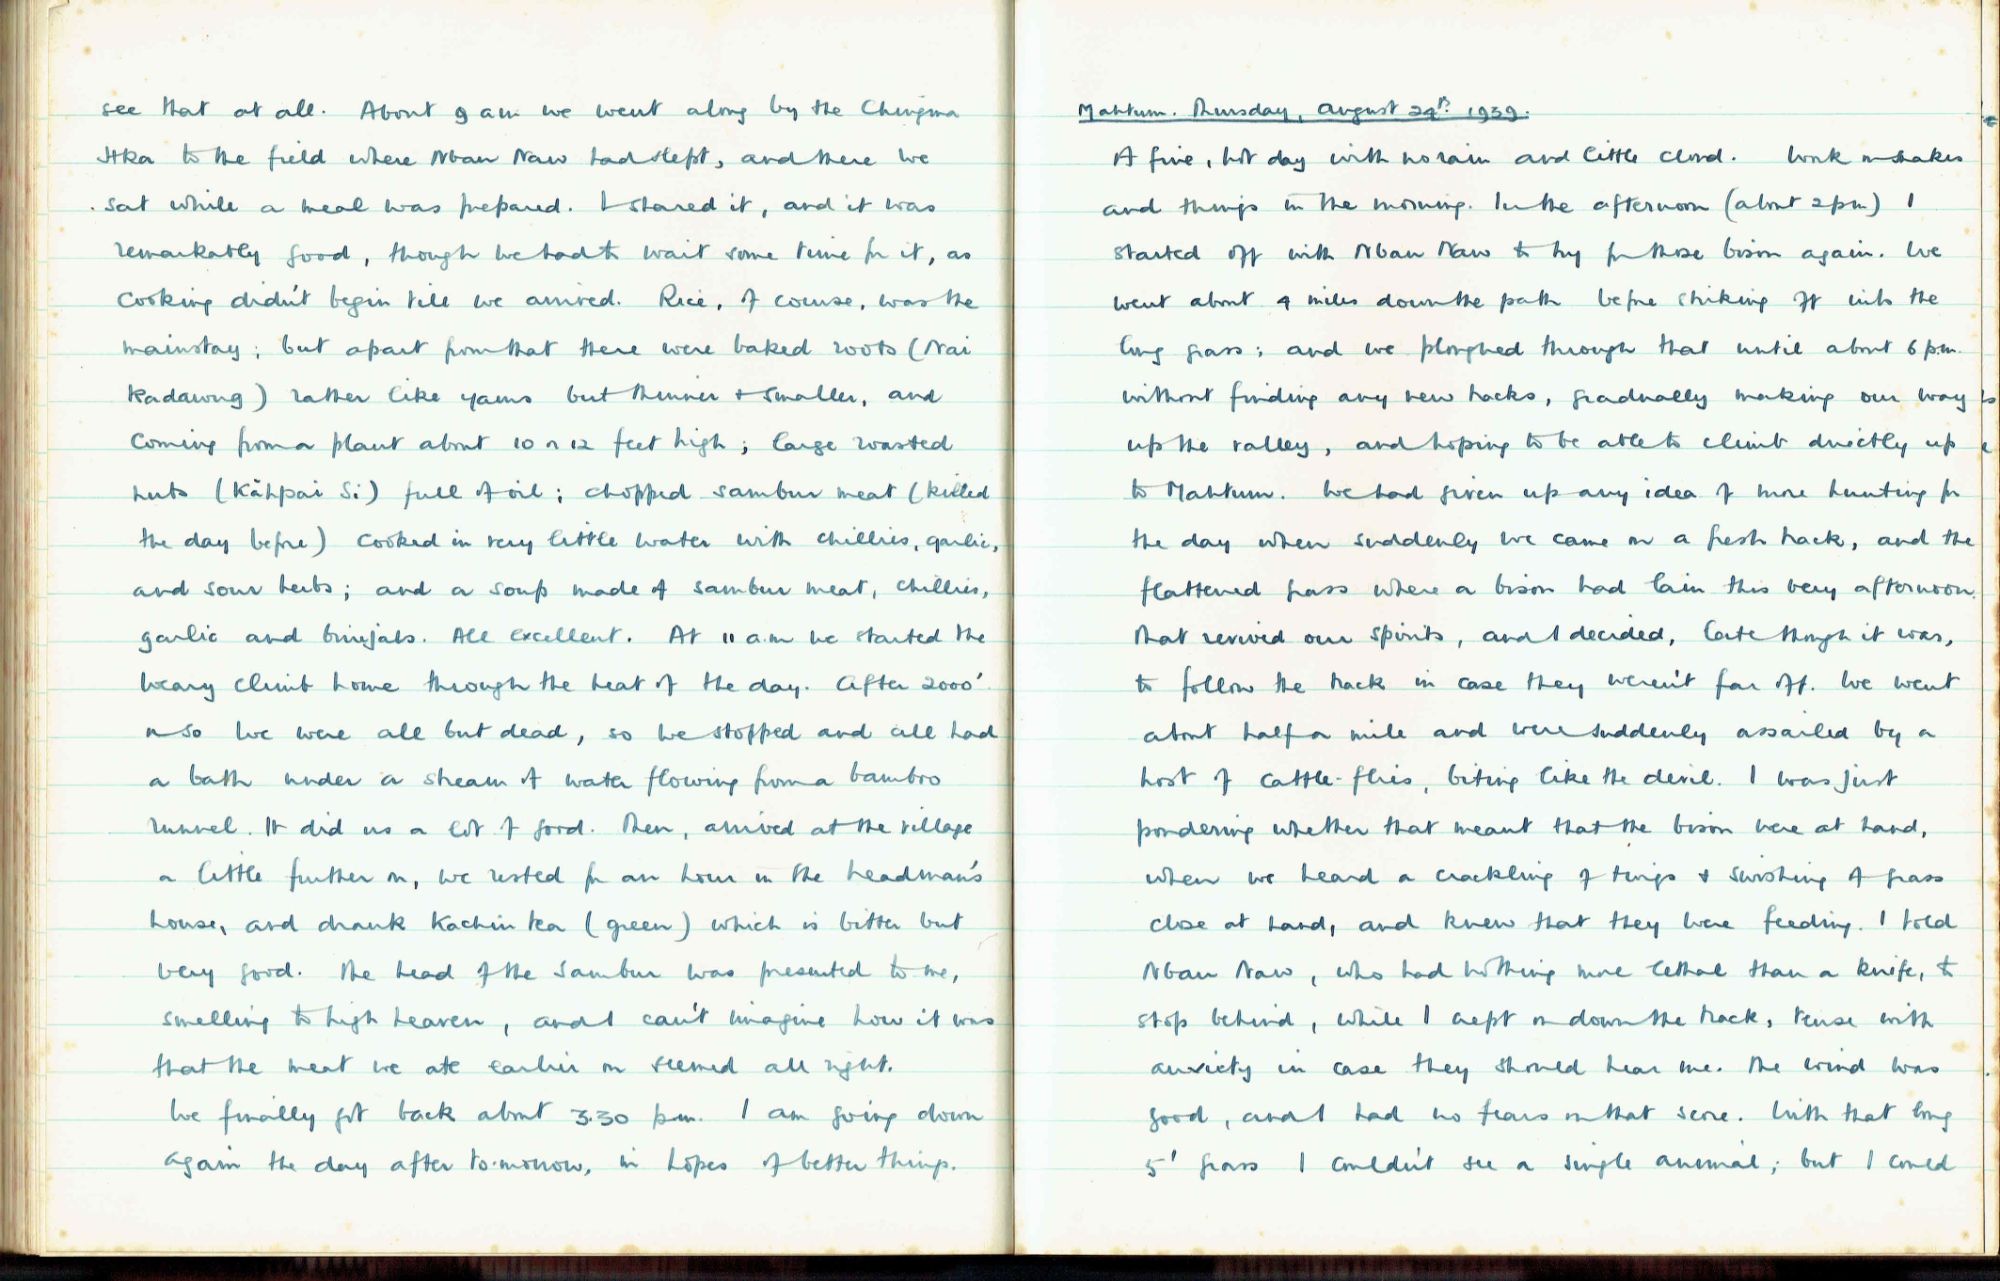 see that at all. About 9 am we went along by the Chingma
Hka to the field where Nbau Naw had slept, and there we
sat while a meal was prepared. I shared it, and it was
remarkably good, though we had to wait some time for it, as
cooking didn't begin till we arrived. Rice, of course, was the
mainstay; but apart from that there were baked roots (Nai
Kadawng) rather like yams but thinner + smaller, and
coming from a plant about 10 or 12 feet high; large roasted
nuts (Kăhpai Si) full of oil; chopped sambur meat (killed
the day before) cooked in very little water with chillies, garlic,
and sour herbs; and a soup made of sambur meat, chillies,
garlic and brinjals. All excellent. At 11 a.m we started the
weary climb home through the heat of the day. After 2000'
or so we were all but dead, so we stopped and all had
a bath under a stream of water flowing from a bamboo
runnel. It did us a lot of good. Then, arrived at the village
a little further on, we rested for an hour in the headman's
house, and drank Kachin tea (green) which is bitter but
very good. The head of the sambur was presented to me,
smelling to high heaven, and I can't imagine how it was
that the meat we ate earlier on seemed all right.
We finally got back about 3.30 p.m. I am going down
again the day after to-morrow, in hopes of better things.
Mahtum. Thursday, August 24th. 1939.
A fine, hot day with no rain and little cloud. Work
and things in the morning. In the afternoon (about 2 pm) I
started off with Nbau Naw to try for those bison again. We
went about 4 miles down the path before striking off into the
long grass; and we ploughed through that until about 6 pm.
without finding any new tracks, gradually making our way
up the valley, and hoping to be able to climb directly up
to Mahtum. We had given up any idea of more hunting for
the day when suddenly we came on a fresh track, and the
flattened grass where a bison had lain this very afternoon.
That revived our spirits, and I decided, late though it was,
to follow the track in case they weren't far off. We went
about half a mile and were suddenly assailed by a
host of cattle-flies, biting like the devil. I was just
pondering whether that meant that the bison were at hand,
when we heard a crackling of twigs + swishing of grass
close at hand, and knew that they were feeding. I told
Nbau Naw, who had nothing more lethal than a knife, to
stop behind, while I crept on down the track, tense with
anxiety in case they should hear me. The wind was
good, and I had no fears on that score. With that long
5' grass I couldn't see a single animal; but I could